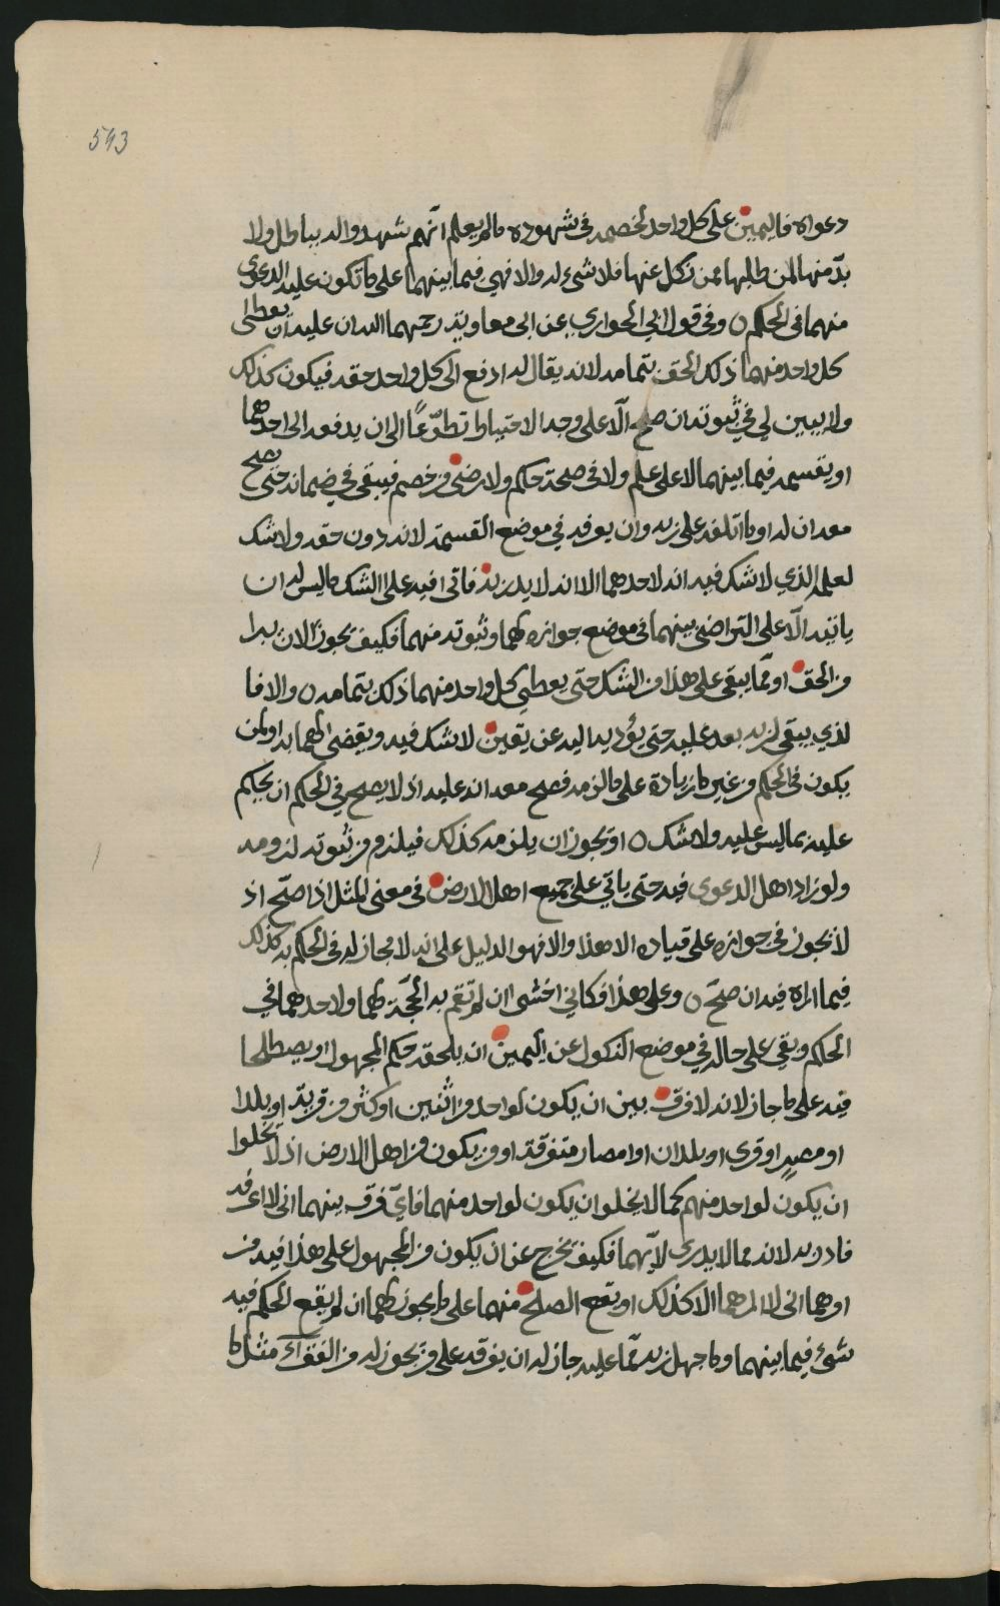 593
دعواه فاليمين على كل واحد لخصمه في شهوده ما لم يعلم انهم شهدوا له بباطل ولا
بدّ منها لمن طلبها فمن نكل عنها فلا شيء له والا فهي فيما بينهما على ما تكون عليه الدعوى
منهما في الحكم ٥ وفي قول ابي الحواري عن ابي معاوية رحمهما الله ان عليه ان يعطى
كل واحد منهما ذلك الحق بتمامه لانه يقال له ادفع الى كل واحد حقه فيكون كذلك
ولا يبين لي في ثبوته ان صح الّا على وجه الاحتياط تطوّعًا الى ان يدفعه الى احدهما
او يقسمه فيما بينهما لا على علم ولا في صحة حكم ولا رضى من خصم فيبقى في ضمانه حتى يصح
معه انه له او ما اتلفه على ربه وان يوفه في موضع القسمة لانه دون حقه ولا شك
لعلمه الذي لا شك فيه انه لاحدهما الا انه لا يدريه فاتى فيه على الشك ما ليس له ان
ياتيه الّا على التراضي بينهما في موضع جوازه لهما وثبوته منهما فكيف يجوز الان يبرا
من الحق او ممّا يبقى على هذا من الشك حتى يعطي كل واحد منهما ذلك بتمامه ٥ والا فا
لذي يبقى لربه بعد عليه حتى يؤديه اليه عن يقين لا شك فيه ويقضى لهما به او لمن
يكون في الحكم من غير ما زيادة على ما لزمه فصح معه انه عليه اذ لا يصح في الحكم ان يحكم
عليه بما ليس عليه ولا شك ٥ او يجوز ان يلزمه كذلك فيلزم من ثبوته لزومه
ولو زاد اهل الدعوى فيه حتى ياتي على جميع اهل الارض في معنى المثل اذا صحّ اذ
لا يجوز في جوازه على قياده الا هذا والا فهو الدليل على انه لا مجاز له في الحكم به كذلك
فيما اراه فيه ان صحّ ٥ وعلى هذا فكاني اخشى ان لم تقم به الحجّة لهما ولاحدهما في
الحكم وبقي على حاله في موضع النكول عن اليمين ان يلحقه حكم المجهول او يصطلحا
فيه على ما جاز لانه لا فرق بين ان يكون لواحد من اثنين او كثر من قرية او بلد
او مصرٍ او قرى او بلدان او امصار متفرقة او من يكون من اهل الارض اذ لا يخلوا
ان يكون لواحد منهم كما لا يخلو ان يكون لواحد منهما فايّ فرق بينهما اني لا اعرفه
فادر به لانه مما لا يدرى لايّهما فكيف يخرج عن ان يكون من المجهول على هذا فيه من
او هما اني لا اراهما الا كذلك او يقع الصلح منهما على ما يجوز لهما ان لم يقع الحكم فيه
بشيء فيما بينهما وما جهل ربه ممّا عليه جاز له ان يفرقه على من يجوز له من الفقرآء مثل ما